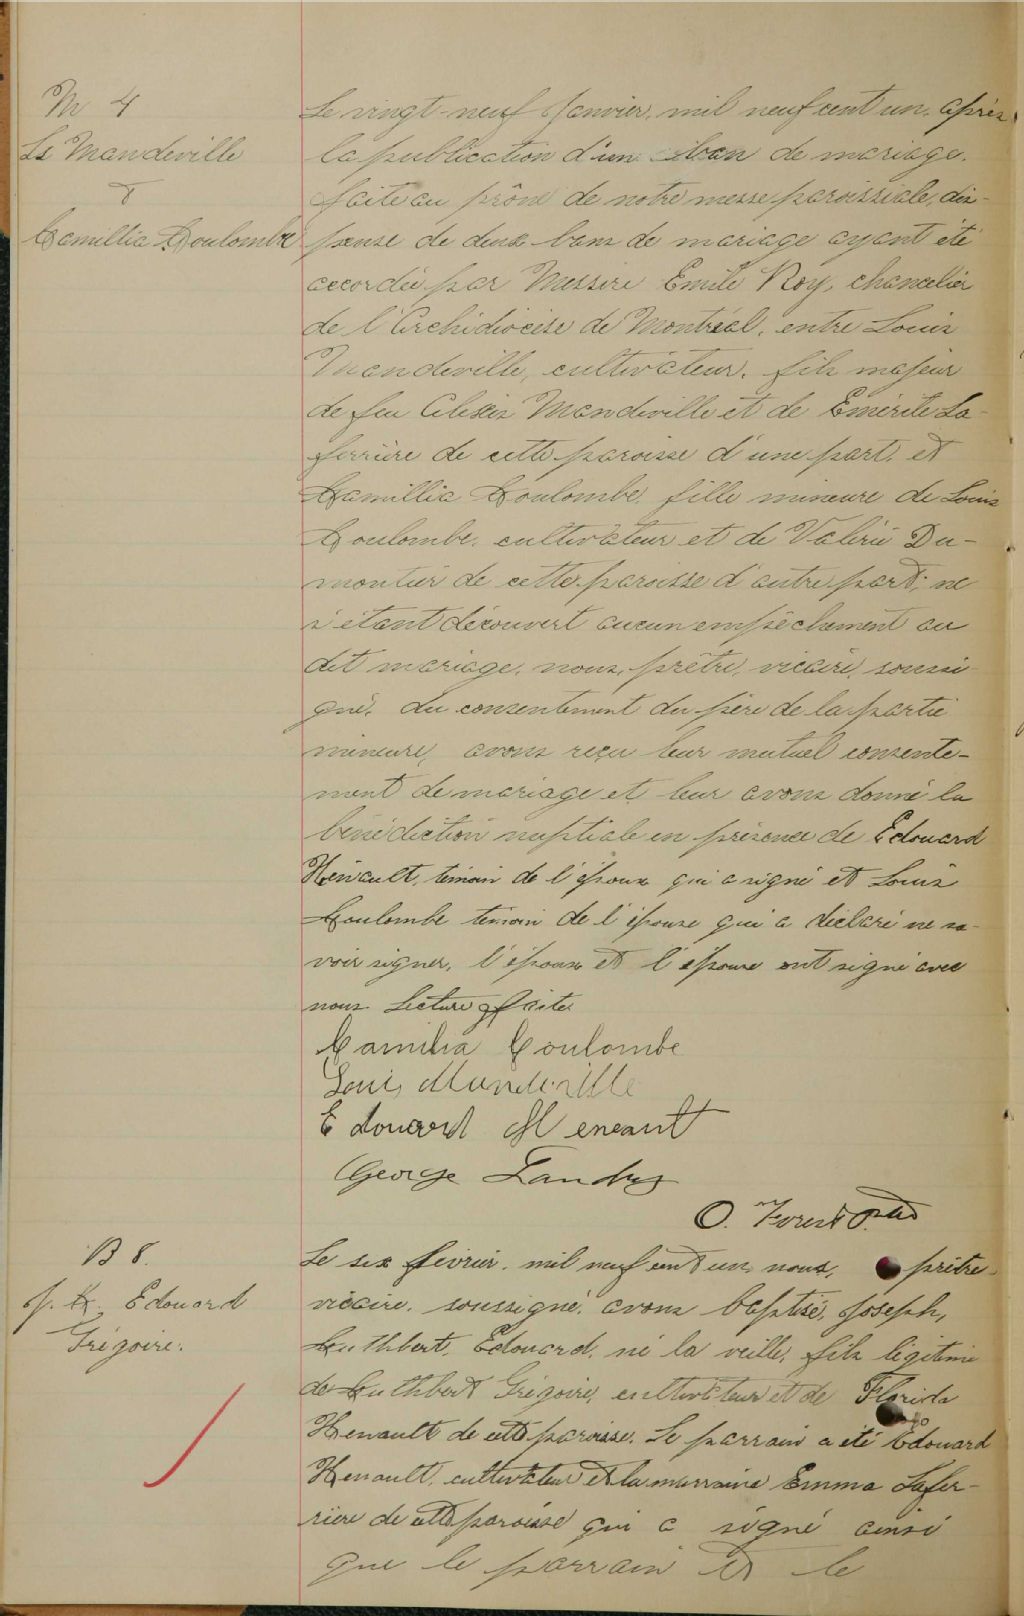 M 4
Ls Mandeville
&
Camillia Coulombe
Le vingt-neuf Janvier, mil neuf cent un, après
la publication d'un ban de mariage,
faite au prône de notre messe paroissiale, dis-
pense de deux bans de mariage ayant été
accordée par Messire Emile Roy, chancelier
de l'Archidiocèse de Montréal, entre Louis
Mandeville, cultivateur, fils majeur
de feu Alexis Mandeville et de Emérite La-
ferrière de cette paroisse d'une part, et
Camillia Coulombe, fille mineure de Louis
Coulombe, cultivateur et de Valérie Du-
montier de cette paroisse d'autre part; ne
s'étant découvert aucun empêchement au
dit mariage, nous, prêtre, vicaire, soussi-
gné, du consentement du père de la partie
mineure, avons reçu leur mutuel consente-
ment de mariage et leur avons donné la
bénédiction nuptiale en présence de Edouard
Hénault, témoin de l'époux qui a signé et Louis
Coulombe témoin de l'épouse qui a déclaré ne sa-
voir signer, l'époux et l'épouse ont signé avec
nous. Lecture faite
Camilia Coulombe
Louis Mandeville
Edouard Heneault
George Landry
O. Forest Ptre
B 8.
J. C. Edouard
Grégoire.
Le six février, mil neuf cent un, nous, prêtre-
vicaire, soussigné, avons baptisé, Joseph,
Cuthbert, Edouard, né la veille, fils légitime
de Cuthbert Grégoire, cultivateur et de Florida
Henault de cette paroisse. Le parrain a été Edouard
Henault, cultivateur et la marraine Emma Lafer-
rière de cette paroisse qui a signé ainsi
que le parrain et le